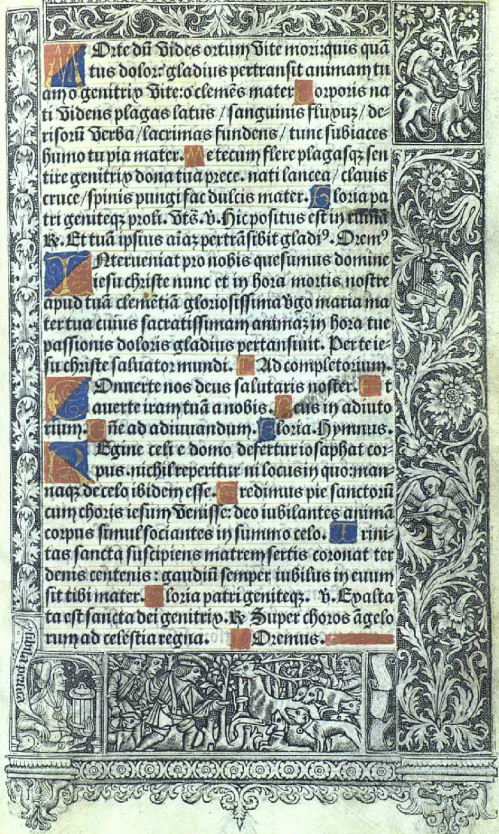 Morte dn̄ vides ortum vite mori: quis quā
tus dolor: gladius pertransit animam tu
am o genitrix vite: o clemēs mater Corporis na
ti videns plagas latus / sanguinis fluxuz / de-
risorū verba / lacrimas fundens / tunc subiaces
humo tu pia mater. Me tecum flere plagasqz sen
tire genitrix dona tua prece. nati lancea / clauis
cruce / spinis pungi fac dulcis mater. Gloria pa
tri geniteqz proli. v̄. Hic positus est in
R. Et tuā ipsius aīaz pertrāsibit gladi⁹. Orem⁹
INterueniat pro nobis quesumus domine
iesu christe nunc et in hora mortis nostre
apud tuā clemētiā gloriosissima v̄go maria ma
ter tua cuius sacratissimam animaz in hora tue
passionis doloris gladius pertansiuit. Per te ie-
su christe saluator mundi. Ad completorium.
COnuerte nos deus salutaris noster. Et
auerte iram tuā a nobis. Deus in adiuto
rium. Dn̄e ad adiuuandum. Gloria. Hymnus.
REgine celi e domo defertur iosaphat cor-
pus. nichil reperitur ni locus in quo: man-
naqz de celo ibidem esse. Credimus pie sanctorū
cum choris iesum venisse: deo iubilantes animā
corpus simul sociantes in summo celo. Trini
tas sancta suscipiens matrem sertis coronat ter
denis centenis: gaudiū semper iubilus in euum
sit tibi mater. Gloria patri geniteqz. v. Exalta
ta est sancta dei genitrix. R Super choros āgelo
rum ad celestia regna. Oremus.